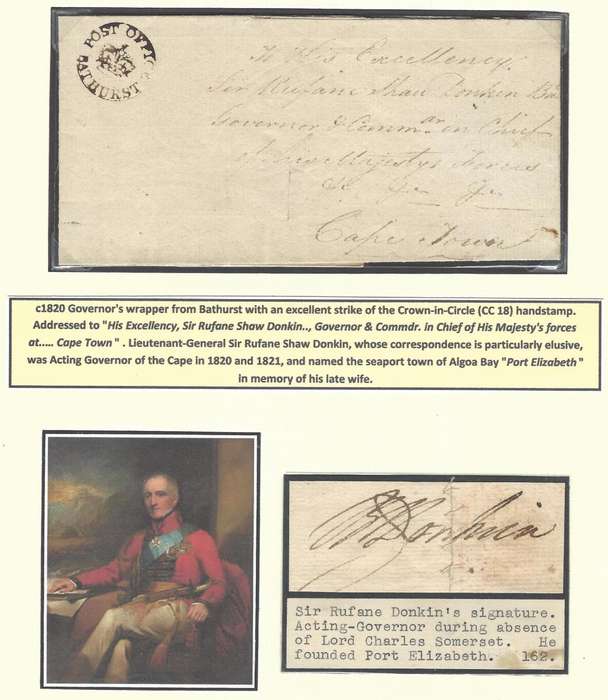 POST OFFICE
BATHURST
To His Excellency
Sir Rufane Shaw Donkin
Governor & Commr in Chief
His Majestys Forces
&c &c &c
Cape Town
c1820 Governor's wrapper from Bathurst with an excellent strike of the Crown-in-Circle (CC 18) handstamp.
Addressed to "His Excellency, Sir Rufane Shaw Donkin.., Governor & Commdr. in Chief of His Majesty's forces
at..... Cape Town " . Lieutenant-General Sir Rufane Shaw Donkin, whose correspondence is particularly elusive,
was Acting Governor of the Cape in 1820 and 1821, and named the seaport town of Algoa Bay "Port Elizabeth "
in memory of his late wife.
Donkin
Sir Rufane Donkin's signature.
Acting-Governor during absence
of Lord Charles Somerset. He
founded Port Elizabeth. 162.